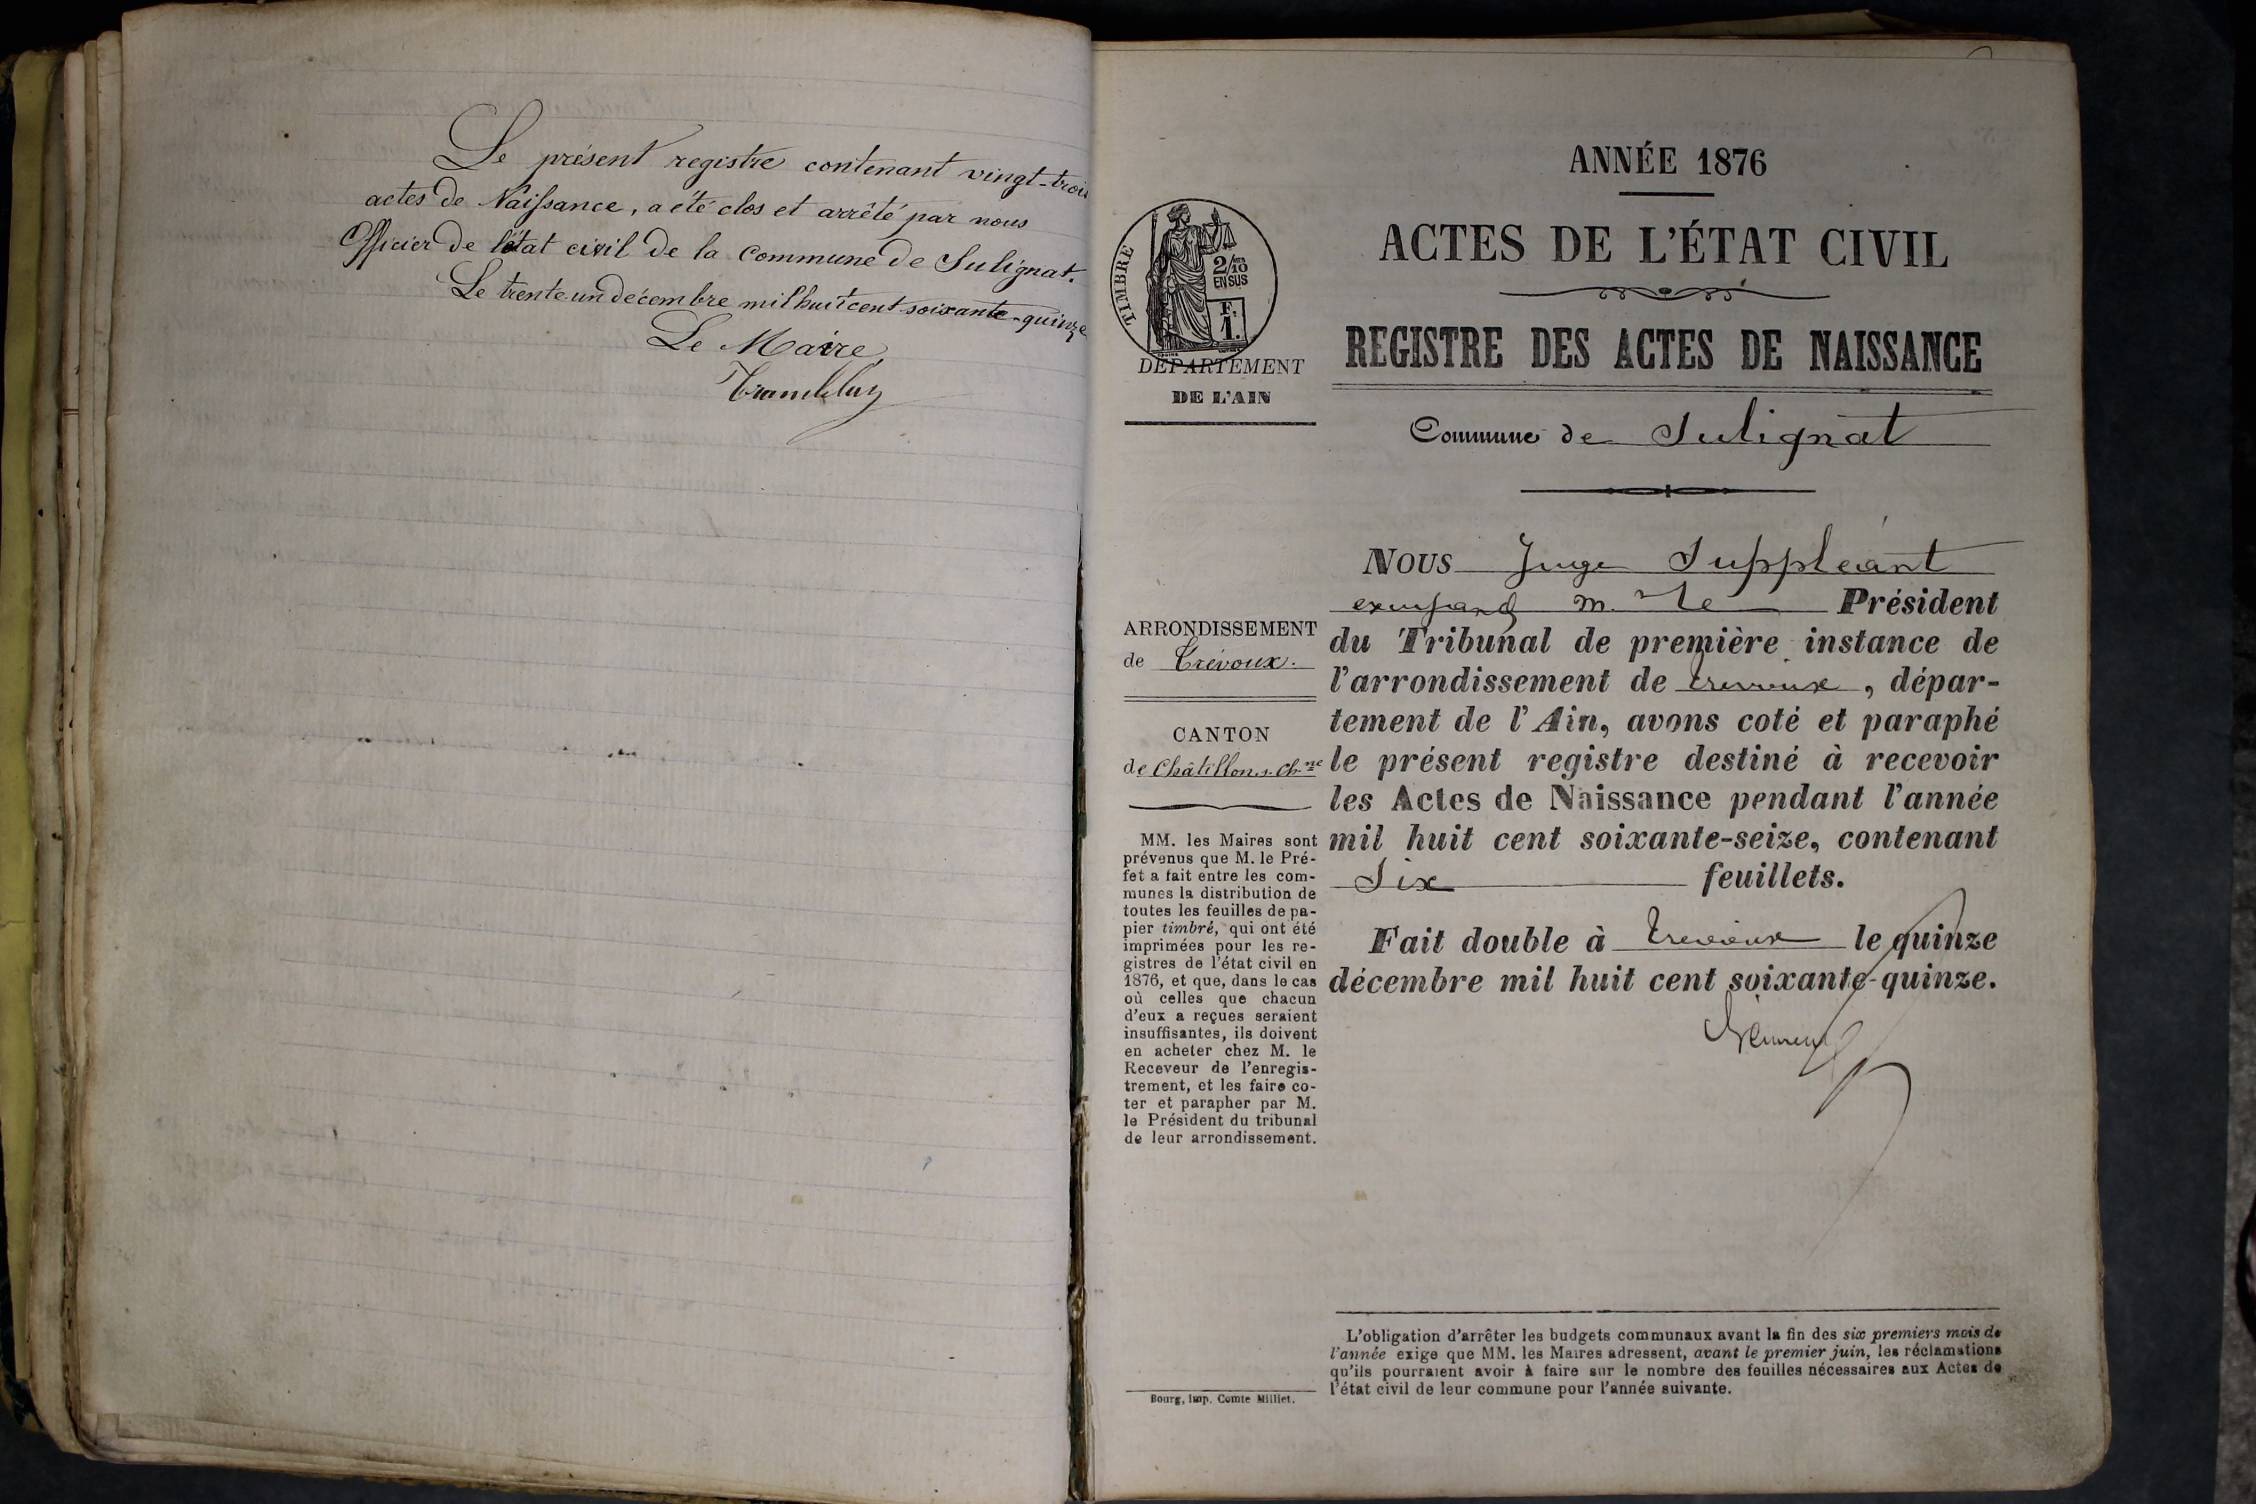 Le présent registre contenant vingt-trois
actes de Naissance, a été clos et arrêté par nous
Officier de l'état civil de la commune de Sulignat.
Le trente-un décembre mil huit cent soixante-quinze
Le Maire,
ANNÉE 1876
ACTES DE L'ÉTAT CIVIL
REGISTRE DES ACTES DE NAISSANCE
Commune de Sulignat
TIMBRE
2/10
EN SUS
F.
1.
DÉPARTEMENT
DE L'AIN
ARRONDISSEMENT
de Trévoux.
CANTON
de Châtillon s. Ch.ne
MM. les Maires sont
prévenus que M. le Pré-
fet a fait entre les com-
munes la distribution de
toutes les feuilles de pa-
pier timbré, qui ont été
imprimées pour les re-
gistres de l'état civil en
1876, et que, dans le cas
où celles que chacun
d'eux a reçues seraient
insuffisantes, ils doivent
en acheter chez M. le
Receveur de l'enregis-
trement, et les faire co-
ter et parapher par M.
le Président du tribunal
de leur arrondissement.
Bourg, Imp. Comte Milliet.
Nous Juge Suppléant
M. le Président
du Tribunal de première instance de
l'arrondissement de Trevoux, dépar-
tement de l'Ain, avons coté et paraphé
le présent registre destiné à recevoir
les Actes de Naissance pendant l'année
mil huit cent soixante-seize, contenant
Six feuillets.
Fait double à Trevoux le quinze
décembre mil huit cent soixante-quinze.
L'obligation d'arrêter les budgets communaux avant la fin des six premiers mois de
l'année exige que MM. les Maires adressent, avant le premier juin, les réclamations
qu'ils pourraient avoir à faire sur le nombre des feuilles nécessaires aux Actes de
l'état civil de leur commune pour l'année suivante.